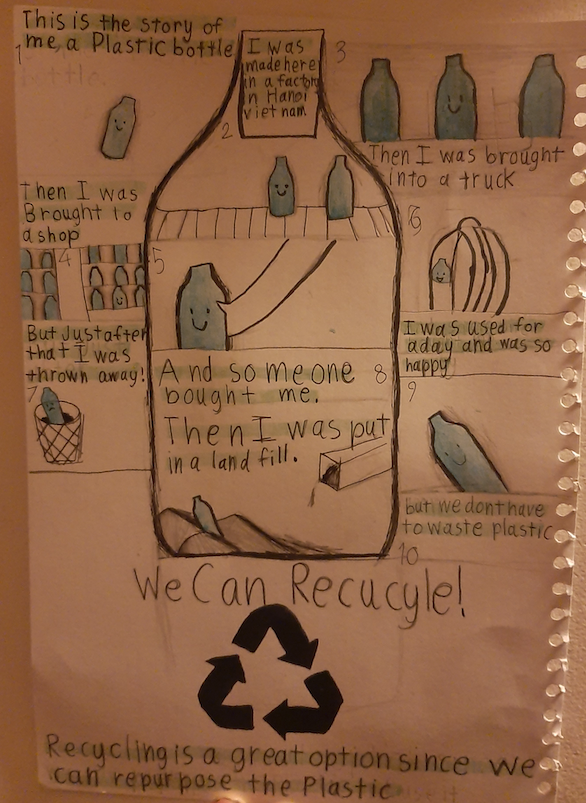 This is the story of
me, a Plastic bottle
1
I was
made here
in a factory
in Hanoi
viet nam
2
3
Then I was brought
into a truck
Then I was
Brought to
a shop
4
5
And someone
bought me.
6
I was used for
a day and was so
happy
But Just after
that I was
thrown away!
7
8
Then I was put
in a land fill.
9
but we dont have
to waste plastic
10
We Can Recucyle!
Recycling is a great option since we
can repurpose the Plastic